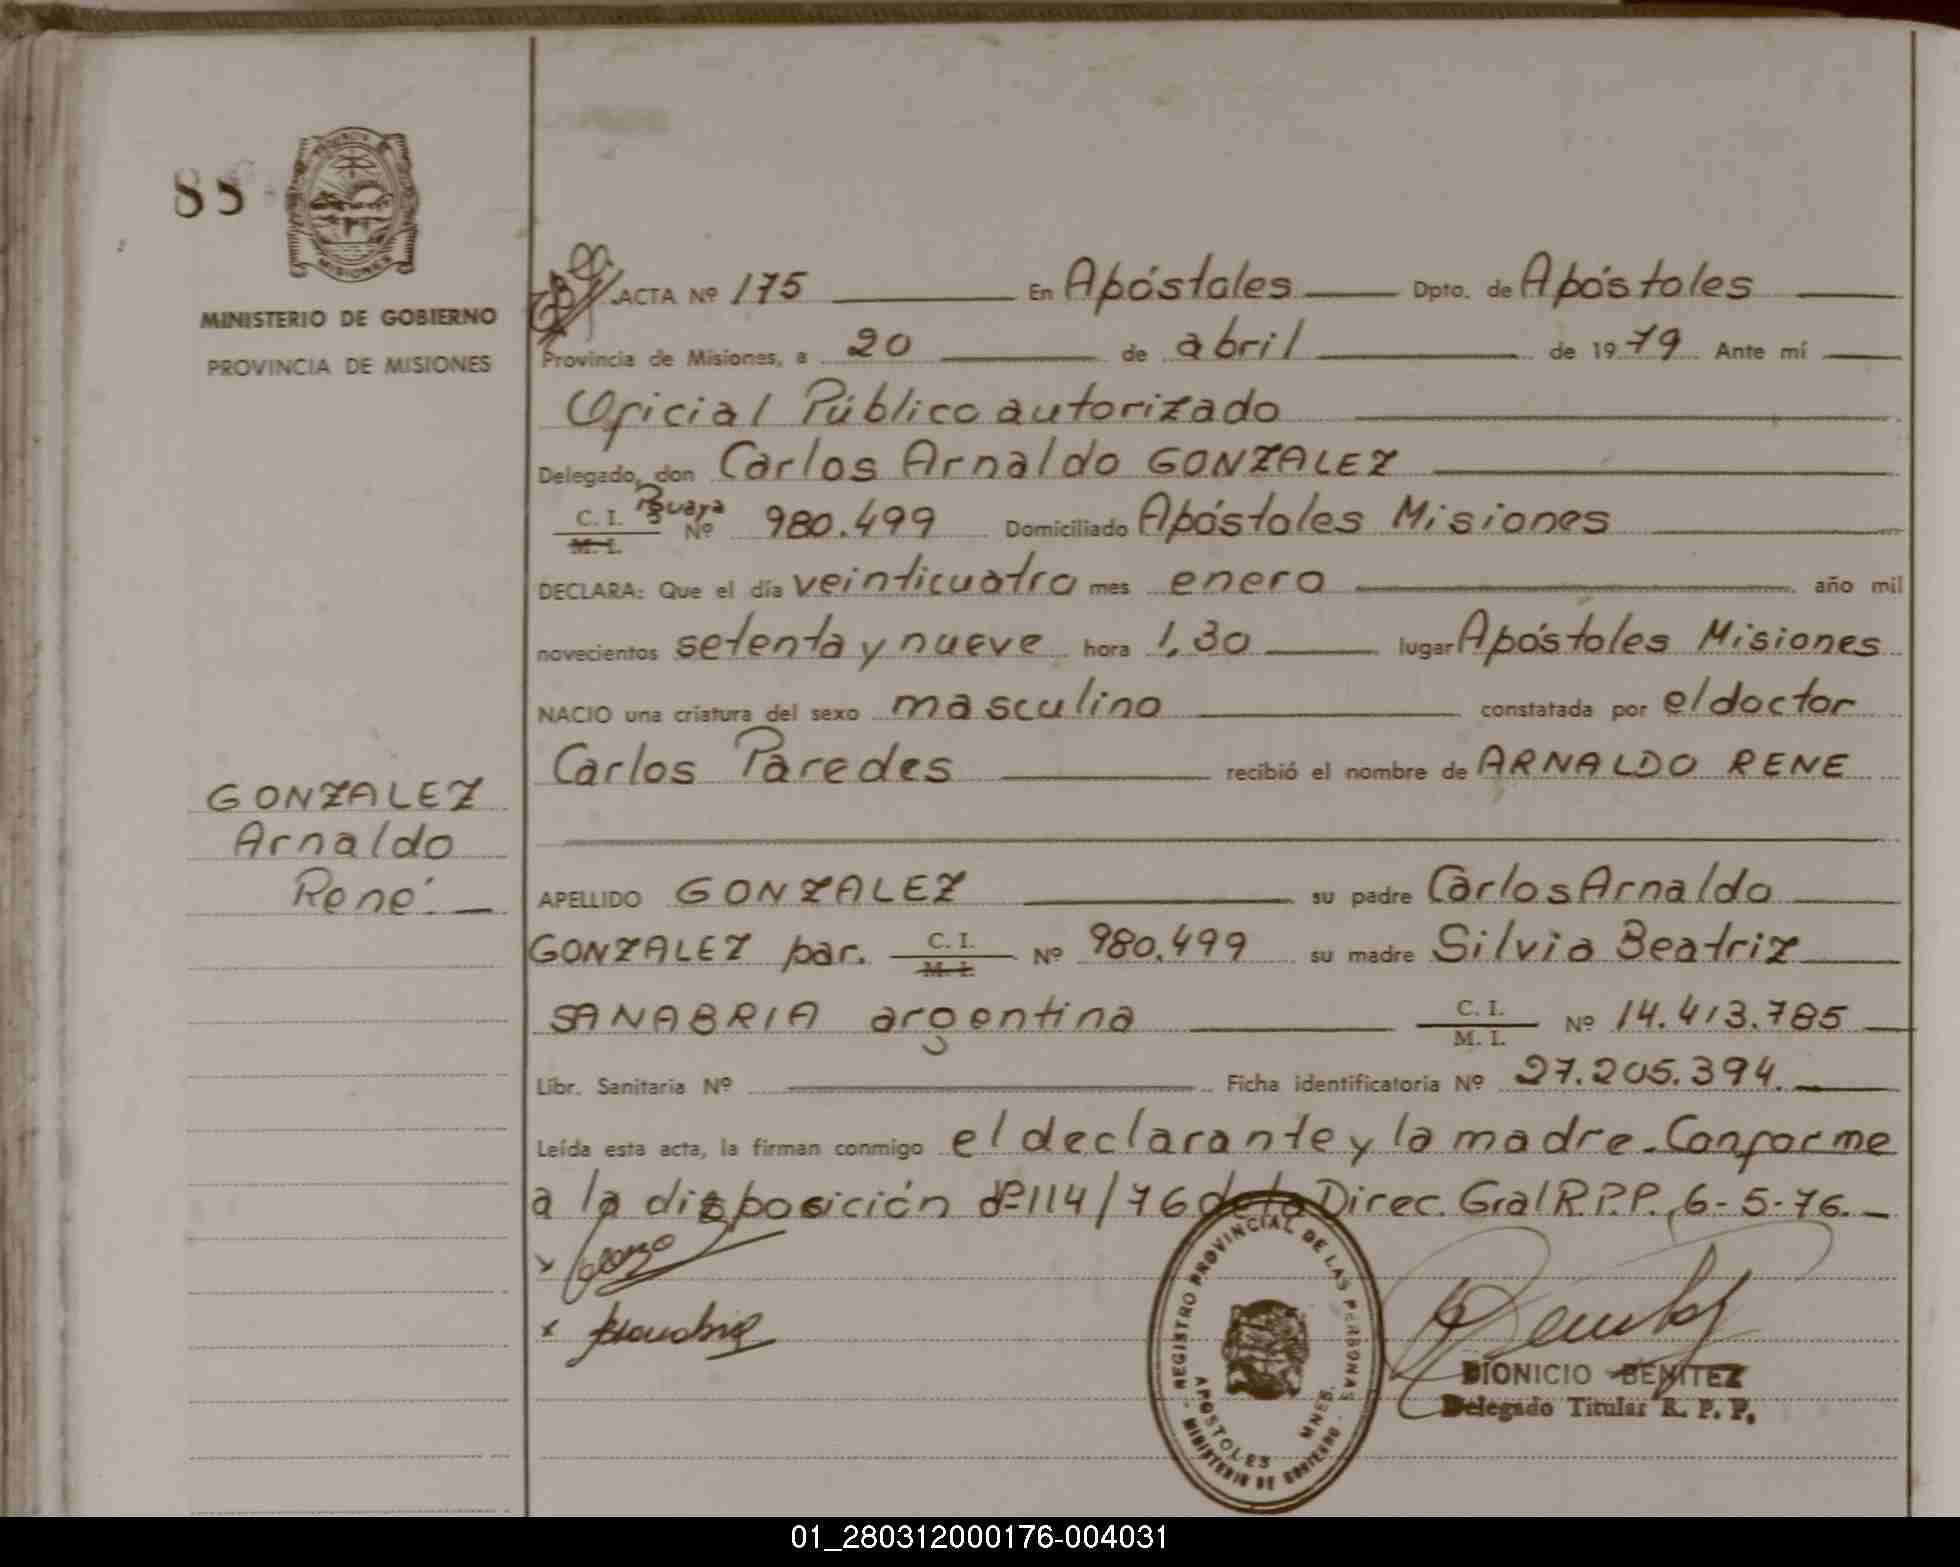 88
PROVINCIA DE
MISIONES
MINISTERIO DE GOBIERNO
PROVINCIA DE MISIONES
ACTA Nº 175 En Apóstoles Dpto. de Apóstoles
Provincia de Misiones, a 20 de abril de 1979 Ante mí
Oficial Público autorizado
Delegado, don Carlos Arnaldo GONZALEZ
C. I. Pguaya
M. I. Nº 980.499 Domiciliado Apóstoles Misiones
DECLARA: Que el día veinticuatro mes enero año mil
novecientos setenta y nueve hora 1,30 lugar Apóstoles Misiones
NACIO una criatura del sexo masculino constatada por el doctor
Carlos Paredes recibió el nombre de ARNALDO RENE
GONZALEZ
Arnaldo
René
APELLIDO GONZALEZ su padre Carlos Arnaldo
GONZALEZ par. C. I. M. I. Nº 980.499 su madre Silvia Beatriz
SANABRIA argentina C. I. M. I. Nº 14.413.785
Libr. Sanitaria Nº Ficha identificatoria Nº 27.205.394
Leída esta acta, la firman conmigo el declarante y la madre. Conforme
a la disposición Nº 114/76 de la Direc. Gral R.P.P. 6-5-76.
REGISTRO PROVINCIAL DE LAS PERSONAS
APOSTOLES MNES.
MINISTERIO DE GOBIERNO
DIONICIO BENITEZ
Delegado Titular R. P. P.
01_280312000176-004031